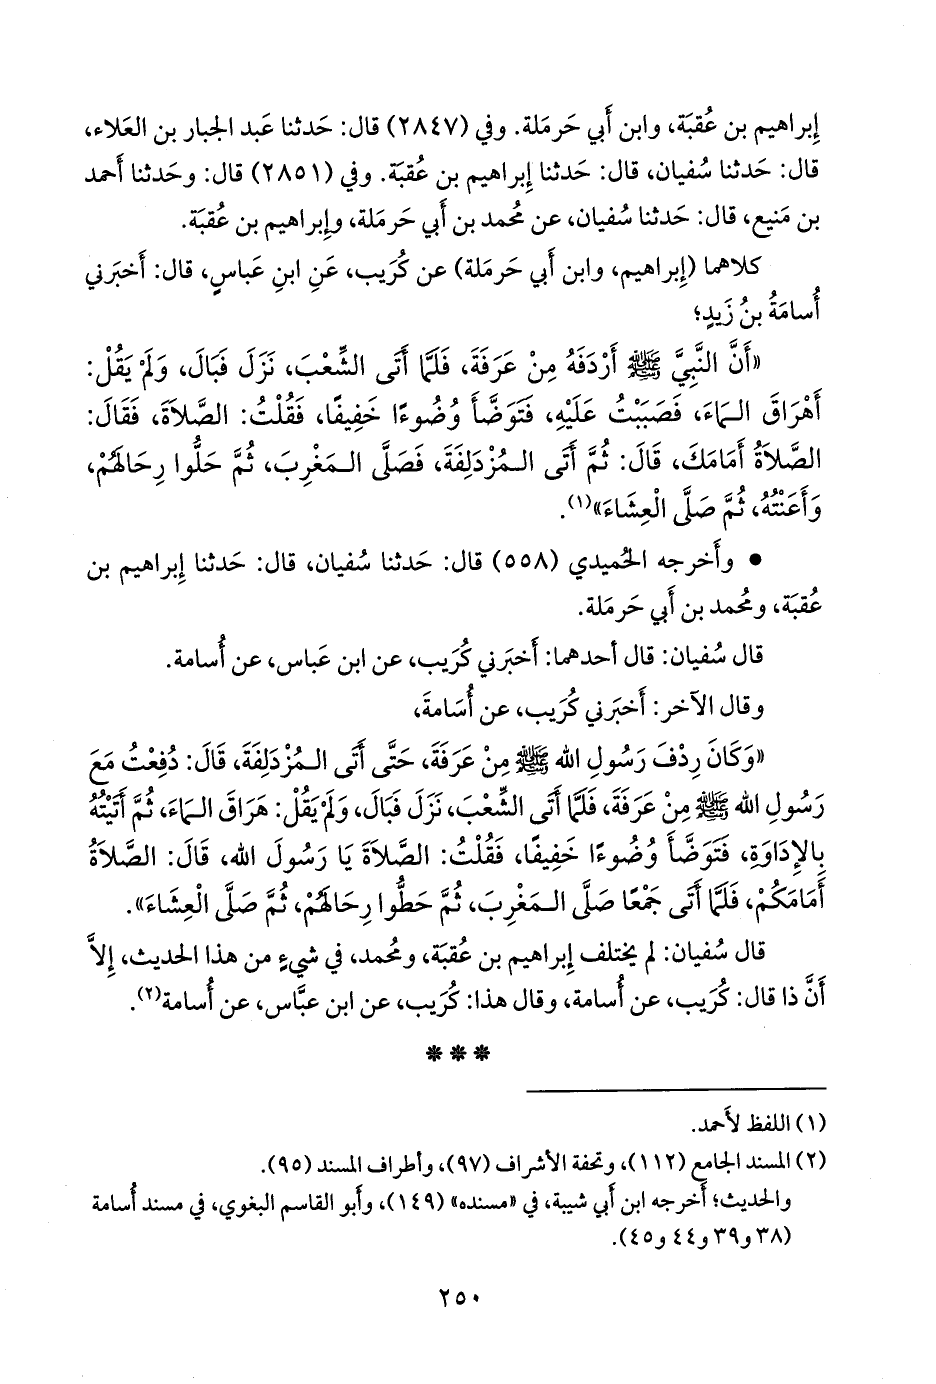 إِبراهيم بن عُقبَة، وابن أَبي حَرمَلة. وفي (٢٨٤٧) قال: حَدثنا عَبد الجبار بن العَلاء،
قال: حَدثنا سُفيان، قال: حَدثنا إِبراهيم بن عُقبَة. وفي (٢٨٥١) قال: وحَدثنا أَحمد
بن مَنيع، قال: حَدثنا سُفيان، عن مُحمد بن أَبي حَرمَلة، وإِبراهيم بن عُقبَة.
كلاهما (إِبراهيم، وابن أَبي حَرمَلة) عن كُرَيب، عَنِ ابنِ عَباسٍ، قال: أَخبَرني
أُسامَةُ بنُ زَيدٍ؛
«أَنَّ النَّبِيَّ ﷺ أَرْدَفَهُ مِنْ عَرَفَةَ، فَلَمَّا أَتَى الشِّعْبَ، نَزَلَ فَبَالَ، وَلَمْ يَقُلْ:
أَهْرَاقَ الـمَاءَ، فَصَبَبْتُ عَلَيْهِ، فَتَوَضَّأَ وُضُوءًا خَفِيفًا، فَقُلْتُ: الصَّلاَةَ، فَقَالَ:
الصَّلاَةُ أَمَامَكَ، قَالَ: ثُمَّ أَتَى الـمُزْدَلِفَةَ، فَصَلَّى الـمَغْرِبَ، ثُمَّ حَلُّوا رِحَالَهُمْ،
وَأَعَنْتُهُ، ثُمَّ صَلَّى الْعِشَاءَ»(١).
• وأَخرجه الحُميدي (٥٥٨) قال: حَدثنا سُفيان، قال: حَدثنا إِبراهيم بن
عُقبَة، ومُحمد بن أَبي حَرمَلة.
قال سُفيان: قال أحدهما: أَخبَرني كُرَيب، عن ابن عَباس، عن أُسامة.
وقال الآخر: أَخبَرني كُرَيب، عن أُسَامةَ،
«وَكَانَ رِدْفَ رَسُولِ الله ﷺ مِنْ عَرَفَةَ، حَتَّى أَتَى الـمُزْدَلِفَةَ، قَالَ: دُفِعْتُ مَعَ
رَسُولِ الله ﷺ مِنْ عَرَفَةَ، فَلَمَّا أَتَى الشِّعْبَ، نَزَلَ فَبَالَ، وَلَمْ يَقُلْ: هَرَاقَ الـمَاءَ، ثُمَّ أَتَيْتُهُ
بِالإِدَاوَةِ، فَتَوَضَّأَ وُضُوءًا خَفِيفًا، فَقُلْتُ: الصَّلاَةَ يَا رَسُولَ الله، قَالَ: الصَّلاَةُ
أَمَامَكُمْ، فَلَمَّا أَتَى جَمْعًا صَلَّى الـمَغْرِبَ، ثُمَّ حَطُّوا رِحَالَهُمْ، ثُمَّ صَلَّى الْعِشَاءَ».
قال سُفيان: لم يختلف إِبراهيم بن عُقبَة، ومُحمد، في شيءٍ من هذا الحديث، إِلاَّ
أَنَّ ذا قال: كُرَيب، عن أُسامة، وقال هذا: كُرَيب، عن ابن عبَّاس، عن أُسامة(٢).
***
(١) اللفظ لأَحمد.
(٢) المسند الجامع (١١٢)، وتحفة الأشراف (٩٧)، وأطراف المسند (٩٥).
والحديث؛ أَخرجه ابن أَبي شيبة، في «مسنده» (١٤٩)، وأَبو القاسم البغوي، في مسند أُسامة
(٣٨ و٣٩ و٤٤ و٤٥).
٢٥٠